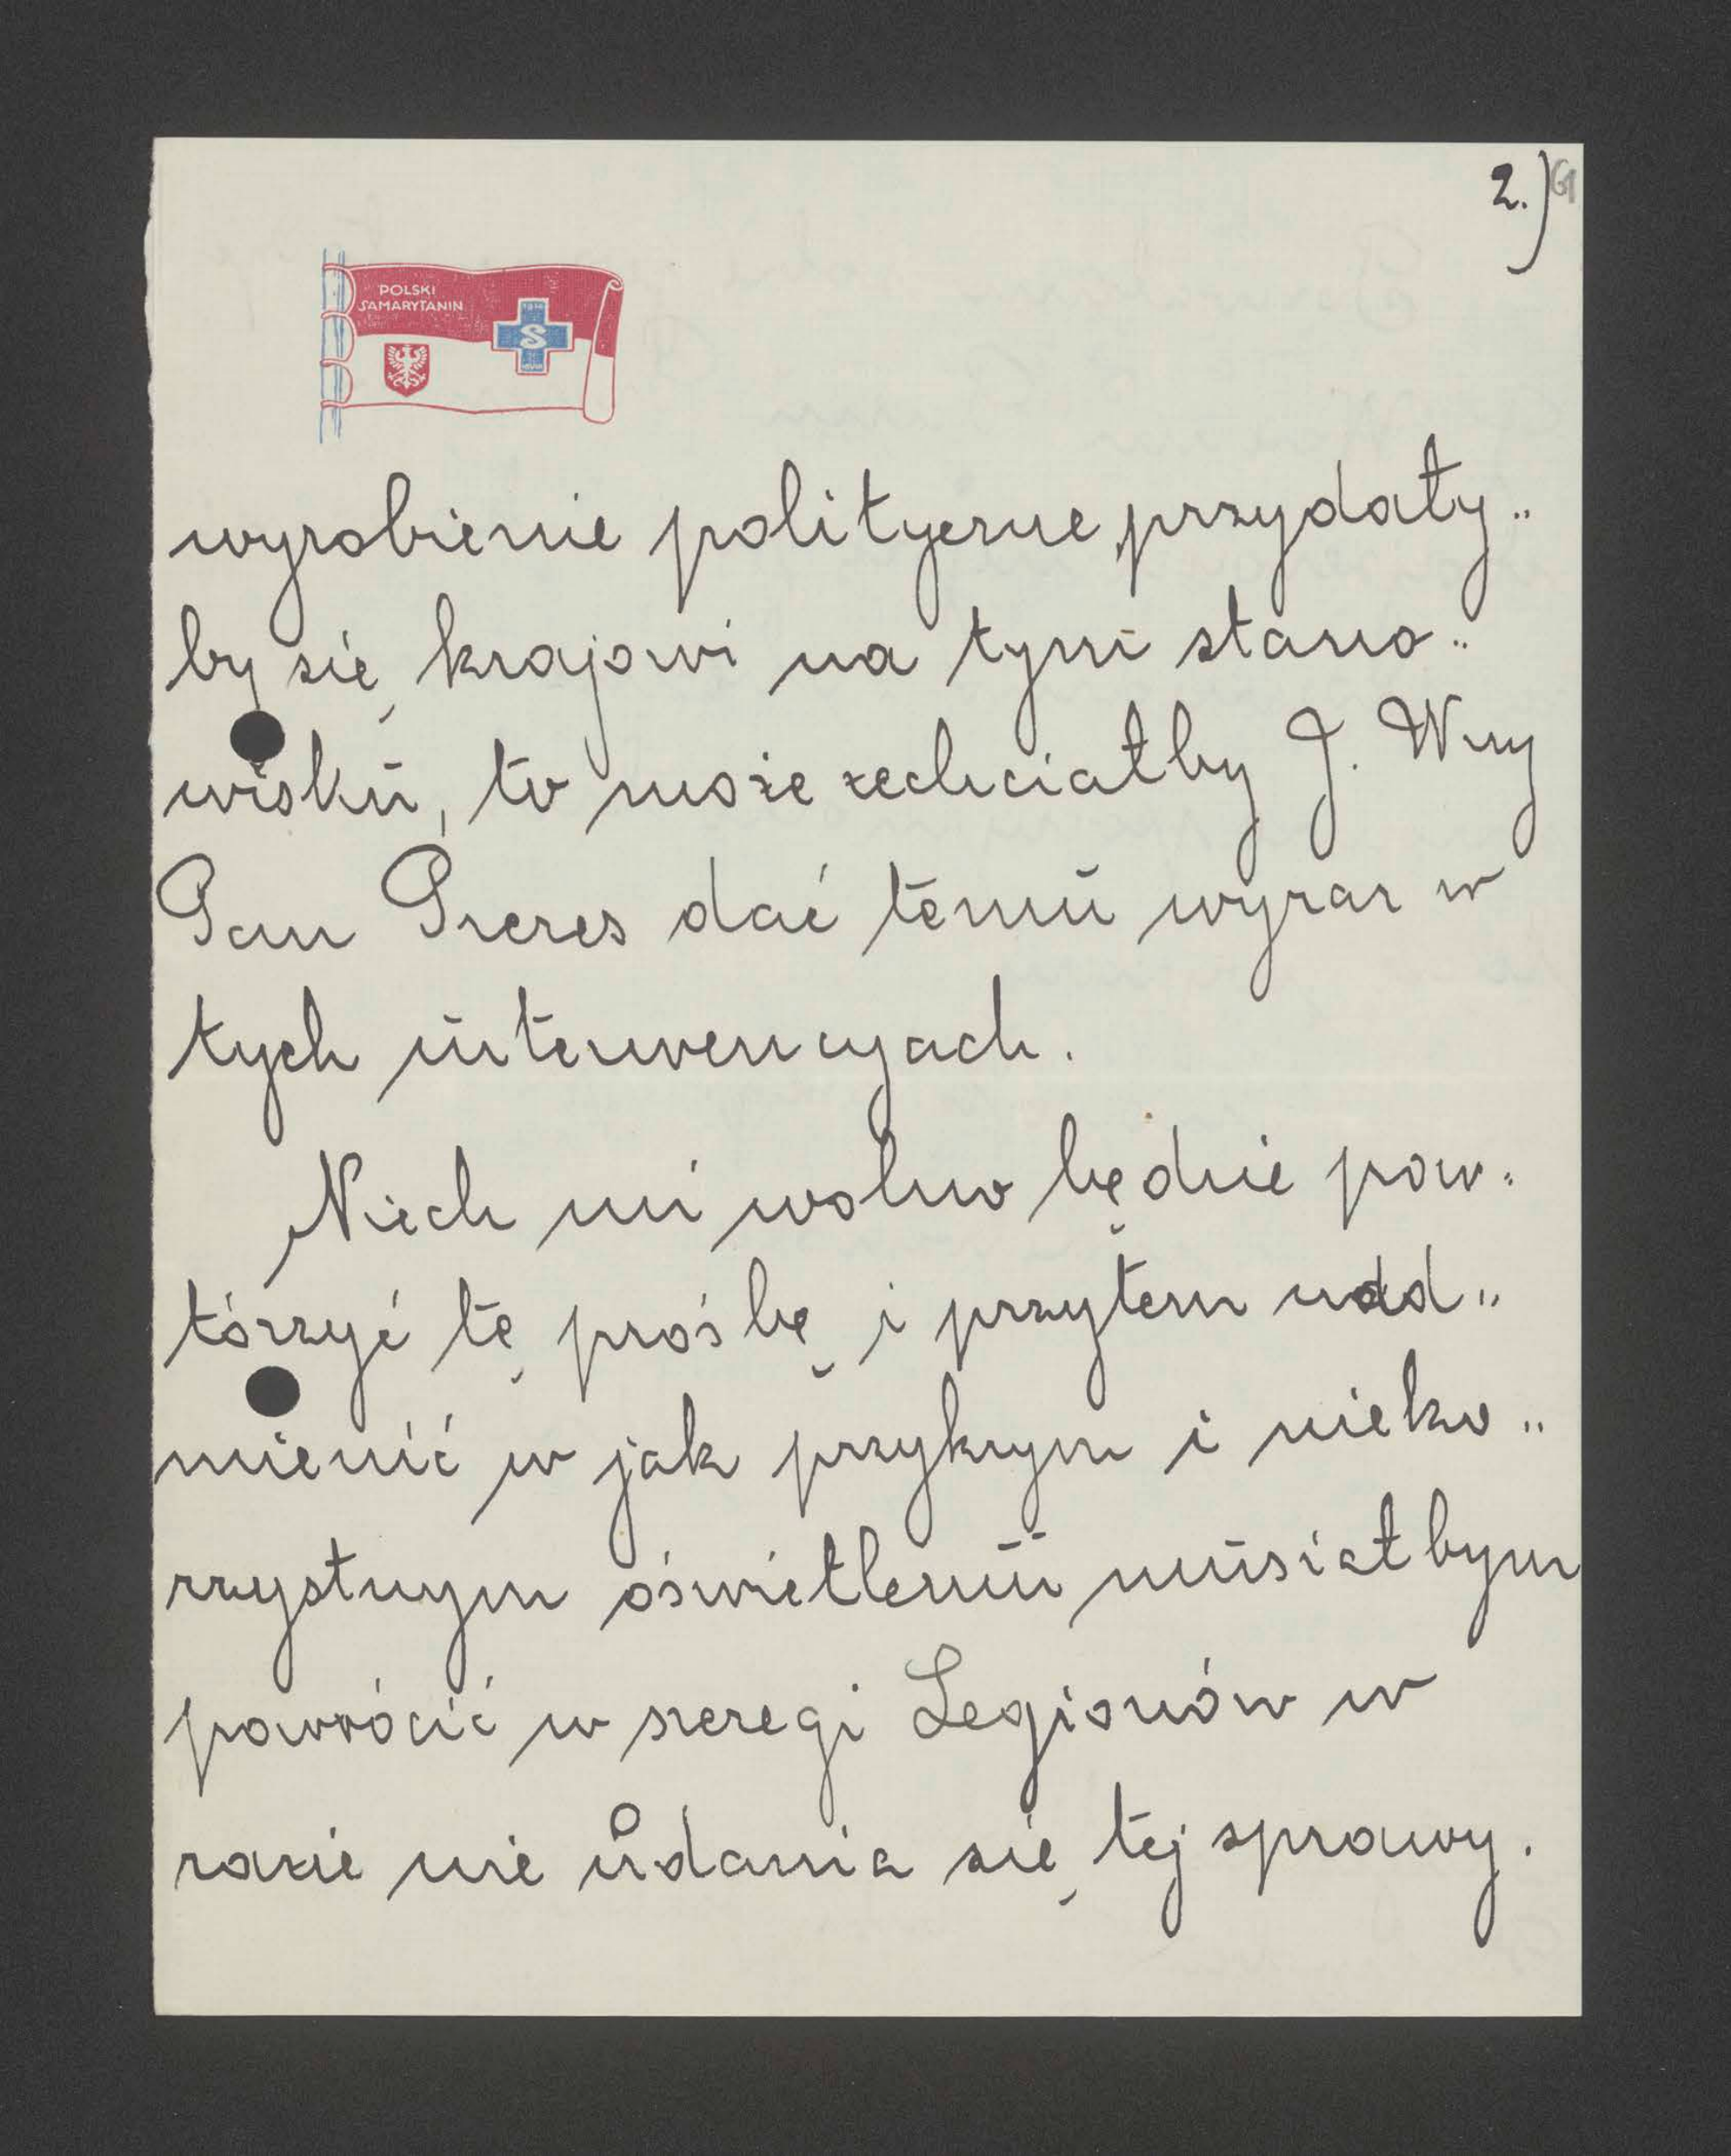 2.)
POLSKI
SAMARYTANIN
1914
S
wyrobienie polityczne, przydały„
by się krajowi na tym stano„
wisku, to może zechciałby J. Wny
Pan Prezes dać temu wyraz w
tych interwencyach.
Niech mi wolno będzie pow„
tórzyć tę prośbę i przytem nad„
mienić w jak przykrym i nieko„
rzystnym oświetleniu musiałbym
powrócić w szeregi Legionów w
razie nie udania się tej sprawy.